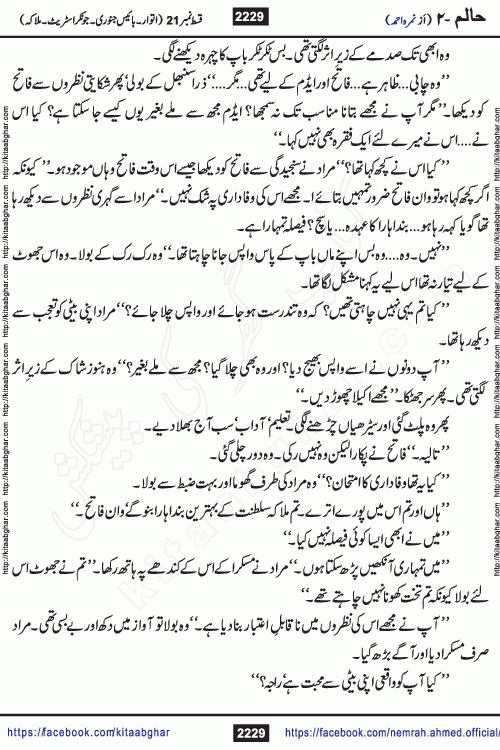 حالم -۲ (از نمرہ احمد)
2229
قسط نمبر 21 (اتوار۔ بائیس جنوری۔ جونکر اسٹریٹ۔ ملاکہ)
وہ ابھی تک صدمے کے زیر اثر لگتی تھی۔ بس ٹکر ٹکر باپ کا چہرہ دیکھنے لگی۔
”وہ چابی... ظاہر ہے... فاتح اور ایڈم کے لیے تھی... مگر....“ ذرا سنبھل کے بولی‘ پھر شکایتی نظروں سے فاتح
کو دیکھا۔ ”مگر آپ نے مجھے بتانا مناسب تک نہ سمجھا؟ ایڈم مجھ سے ملے بغیر یوں کیسے جا سکتا ہے؟ کیا اس
نے.... اس نے میرے لئے ایک فقرہ بھی نہیں کہا۔“
”کیا اس نے کچھ کہا تھا؟“ مراد نے سنجیدگی سے فاتح کو دیکھا جیسے اس وقت فاتح وہاں موجود ہو۔ ”کیونکہ
اگر کچھ کہا ہو تو وان فاتح ضرور تمہیں بتائے ا۔ مجھے اس کی وفاداری پہ شک نہیں۔“ مراد اسے گہری نظروں سے دیکھ رہا
تھا گویا کہہ رہا ہو... بنداہارا کا عہدہ... یا سچ؟ فیصلہ تمہارا ہے۔
”نہیں۔ وہ.... وہ بس اپنے ماں باپ کے پاس واپس جانا چاہتا تھا۔“ وہ رک رک کے بولا۔ وہ اس جھوٹ
کے لیے تیار نہ تھا اس لیے یہ کہنا مشکل لگا تھا۔
”کیا تم یہی نہیں چاہتی تھیں؟ کہ وہ تندرست ہو جائے اور واپس چلا جائے؟“ مراد اپنی بیٹی کو تعجب سے
دیکھ رہا تھا۔
”آپ دونوں نے اسے واپس بھیج دیا؟ اور وہ بھی چلا گیا؟ مجھ سے ملے بغیر؟“ وہ ہنوز شاک کے زیر اثر
لگتی تھی۔ پھر سر جھٹکا۔ ”مجھے اکیلا چھوڑ دیں۔“
پھر وہ پلٹ گئی اور سیڑھیاں چڑھنے لگی۔ تعلیم‘ آداب‘ سب آج بھلا دیے۔
”تالیہ۔“ فاتح نے پکارا لیکن وہ نہیں رکی۔ وہ دور چلی گئی۔
”کیا یہ تھا وفاداری کا امتحان؟“ وہ مراد کی طرف گھوما اور بہت ضبط سے بولا۔
”ہاں اور تم اس میں پورے اترے۔ تم ملاکہ سلطنت کے بہترین بنداہارا بنو گے‘ وان فاتح۔“
”میں نے ابھی ایسا کوئی فیصلہ نہیں کیا۔“
”میں تمہاری آنکھیں پڑھ سکتا ہوں۔“ مراد نے مسکرا کے اس کے کندھے پہ ہاتھ رکھا۔ ”تم نے جھوٹ اس
لئے بولا کیونکہ تم تخت کھونا نہیں چاہتے تھے۔“
”آپ نے مجھے اس کی نظروں میں نا قابلِ اعتبار بنا دیا ہے۔“ وہ بولا تو آواز میں دکھ اور بے بسی تھی۔ مراد
صرف مسکرا دیا اور آگے بڑھ گیا۔
”کیا آپ کو واقعی اپنی بیٹی سے محبت ہے‘ راجہ؟“
http://kitaabghar.com
https://facebook.com/kitaabghar
2229
https://facebook.com/nemrah.ahmed.official/